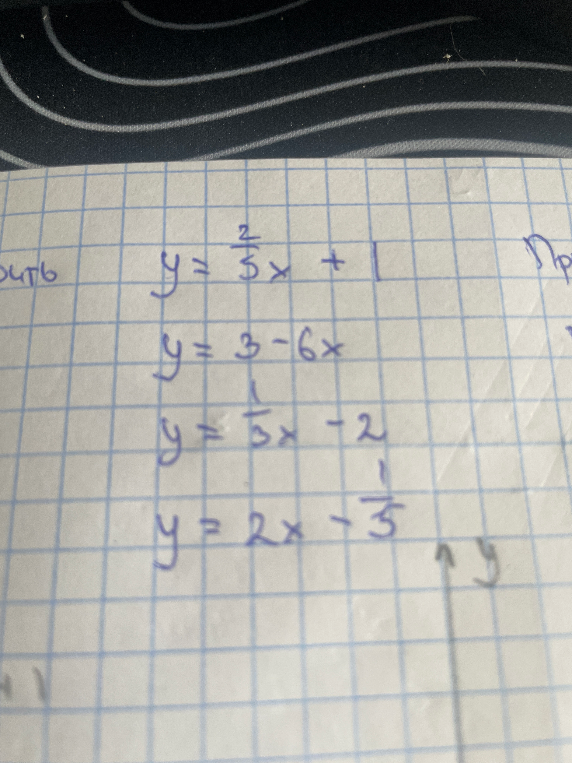 y = 2/5 x + 1
y = 3 - 6x
y = 1/3 x - 2
y = 2x - 1/5
y